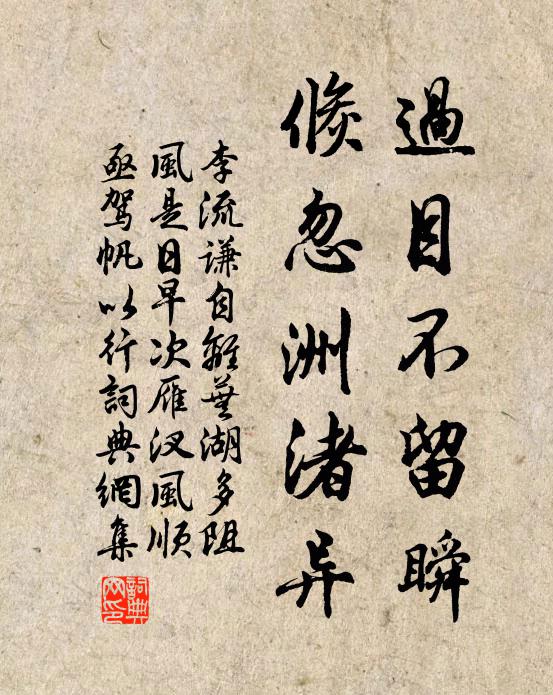 過目不留瞬
倐忽洲渚异
李流谦自離蕪湖多阻
風是日早次雁汊風順
亟駕帆以行詞典網集
詞典网印